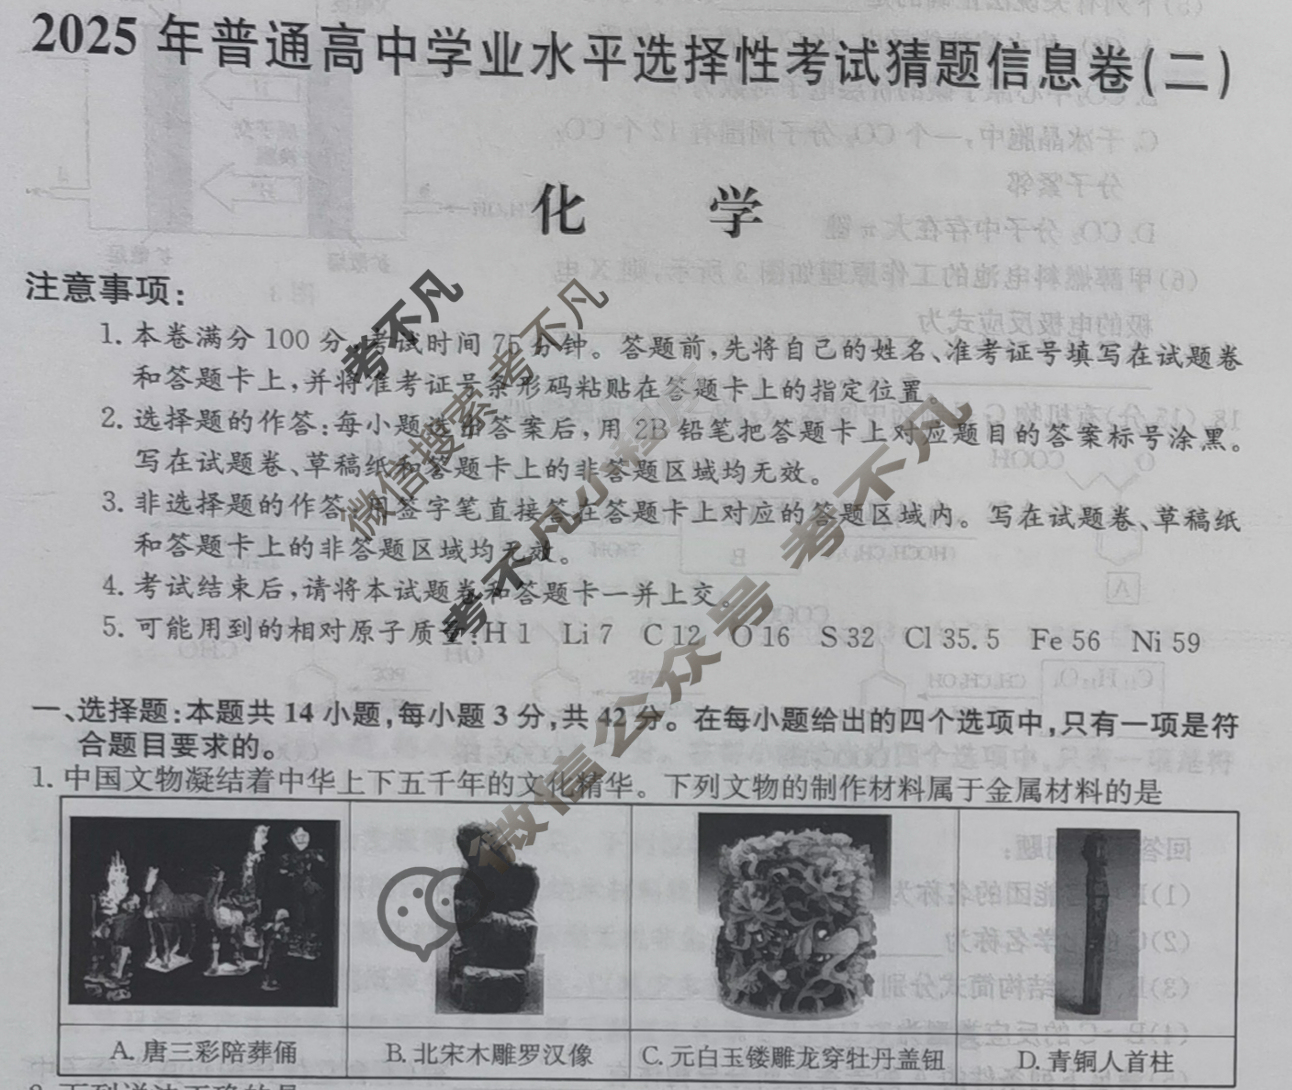 2025年普通高中学业水平选择性考试猜题信息卷(二)
化 学
注意事项:
1. 本卷满分100分,考试时间75分钟。答题前,先将自己的姓名、准考证号填写在试题卷
和答题卡上,并将准考证号条形码粘贴在答题卡上的指定位置。
2. 选择题的作答:每小题选出答案后,用2B铅笔把答题卡上对应题目的答案标号涂黑。
写在试题卷、草稿纸和答题卡上的非答题区域均无效。
3. 非选择题的作答:用签字笔直接答在答题卡上对应的答题区域内。写在试题卷、草稿纸
和答题卡上的非答题区域均无效。
4. 考试结束后,请将本试题卷和答题卡一并上交。
5. 可能用到的相对原子质量:H 1 Li 7 C 12 O 16 S 32 Cl 35.5 Fe 56 Ni 59
一、选择题:本题共14小题,每小题3分,共42分。在每小题给出的四个选项中,只有一项是符
合题目要求的。
1. 中国文物凝结着中华上下五千年的文化精华。下列文物的制作材料属于金属材料的是
A. 唐三彩陪葬俑
B. 北宋木雕罗汉像
C. 元白玉镂雕龙穿牡丹盖钮
D. 青铜人首柱
考不凡
微信搜索 考不凡
考不凡小程序
微信公众号 考不凡